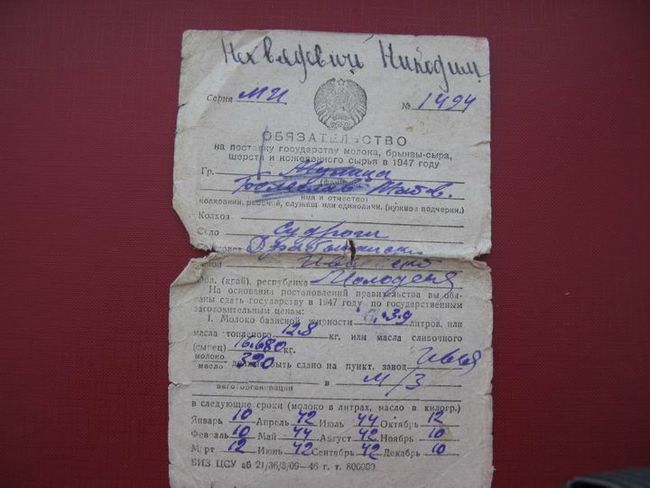 Нехвядович Никодим
Серия МИ № 1494
ОБЯЗАТЕЛЬСТВО
на поставку государству молока, брынзы-сыра,
шерсти и кожевенного сырья в 1947 году
Гр.
имя и отчество)
колхозник, рабочий, служащ. или единоличн. (нужное подчерки.)
Колхоз
Село Судроги
Обл. (край), республика Молодечн
На основании постановлений правительства вы обя-
заны сдать государству в 1947 году по государственным
заготовительным ценам:
1. Молоко базисной жирности литров, или
масла топленого 12,8 кг. или масла сливочного
(сырец) 16,680 кг.
молоко 390 должно быть сдано на пункт, завод Ивья
масло
в М/З
заготорганизации
в следующие сроки (молоко в литрах, масло в килогр.)
Январь 10 Апрель 42 Июль 44 Октябрь 12
Февраль 10 Май 44 Август 42 Ноябрь 10
Март 12 Июнь 42 Сентябрь 42 Декабрь 10
БИЗ ЦСУ аб 21/36/3/09—46 г. т. 800000